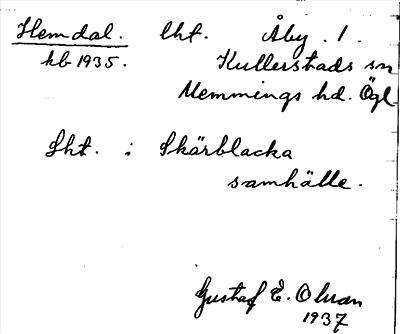 Hemdal. lht. Åby. 1.
kb 1935. Kullerstads sn
Memmings hd. Ögl
Sht. : Skärblacka
samhälle.
Gustaf E. Olsson
1937